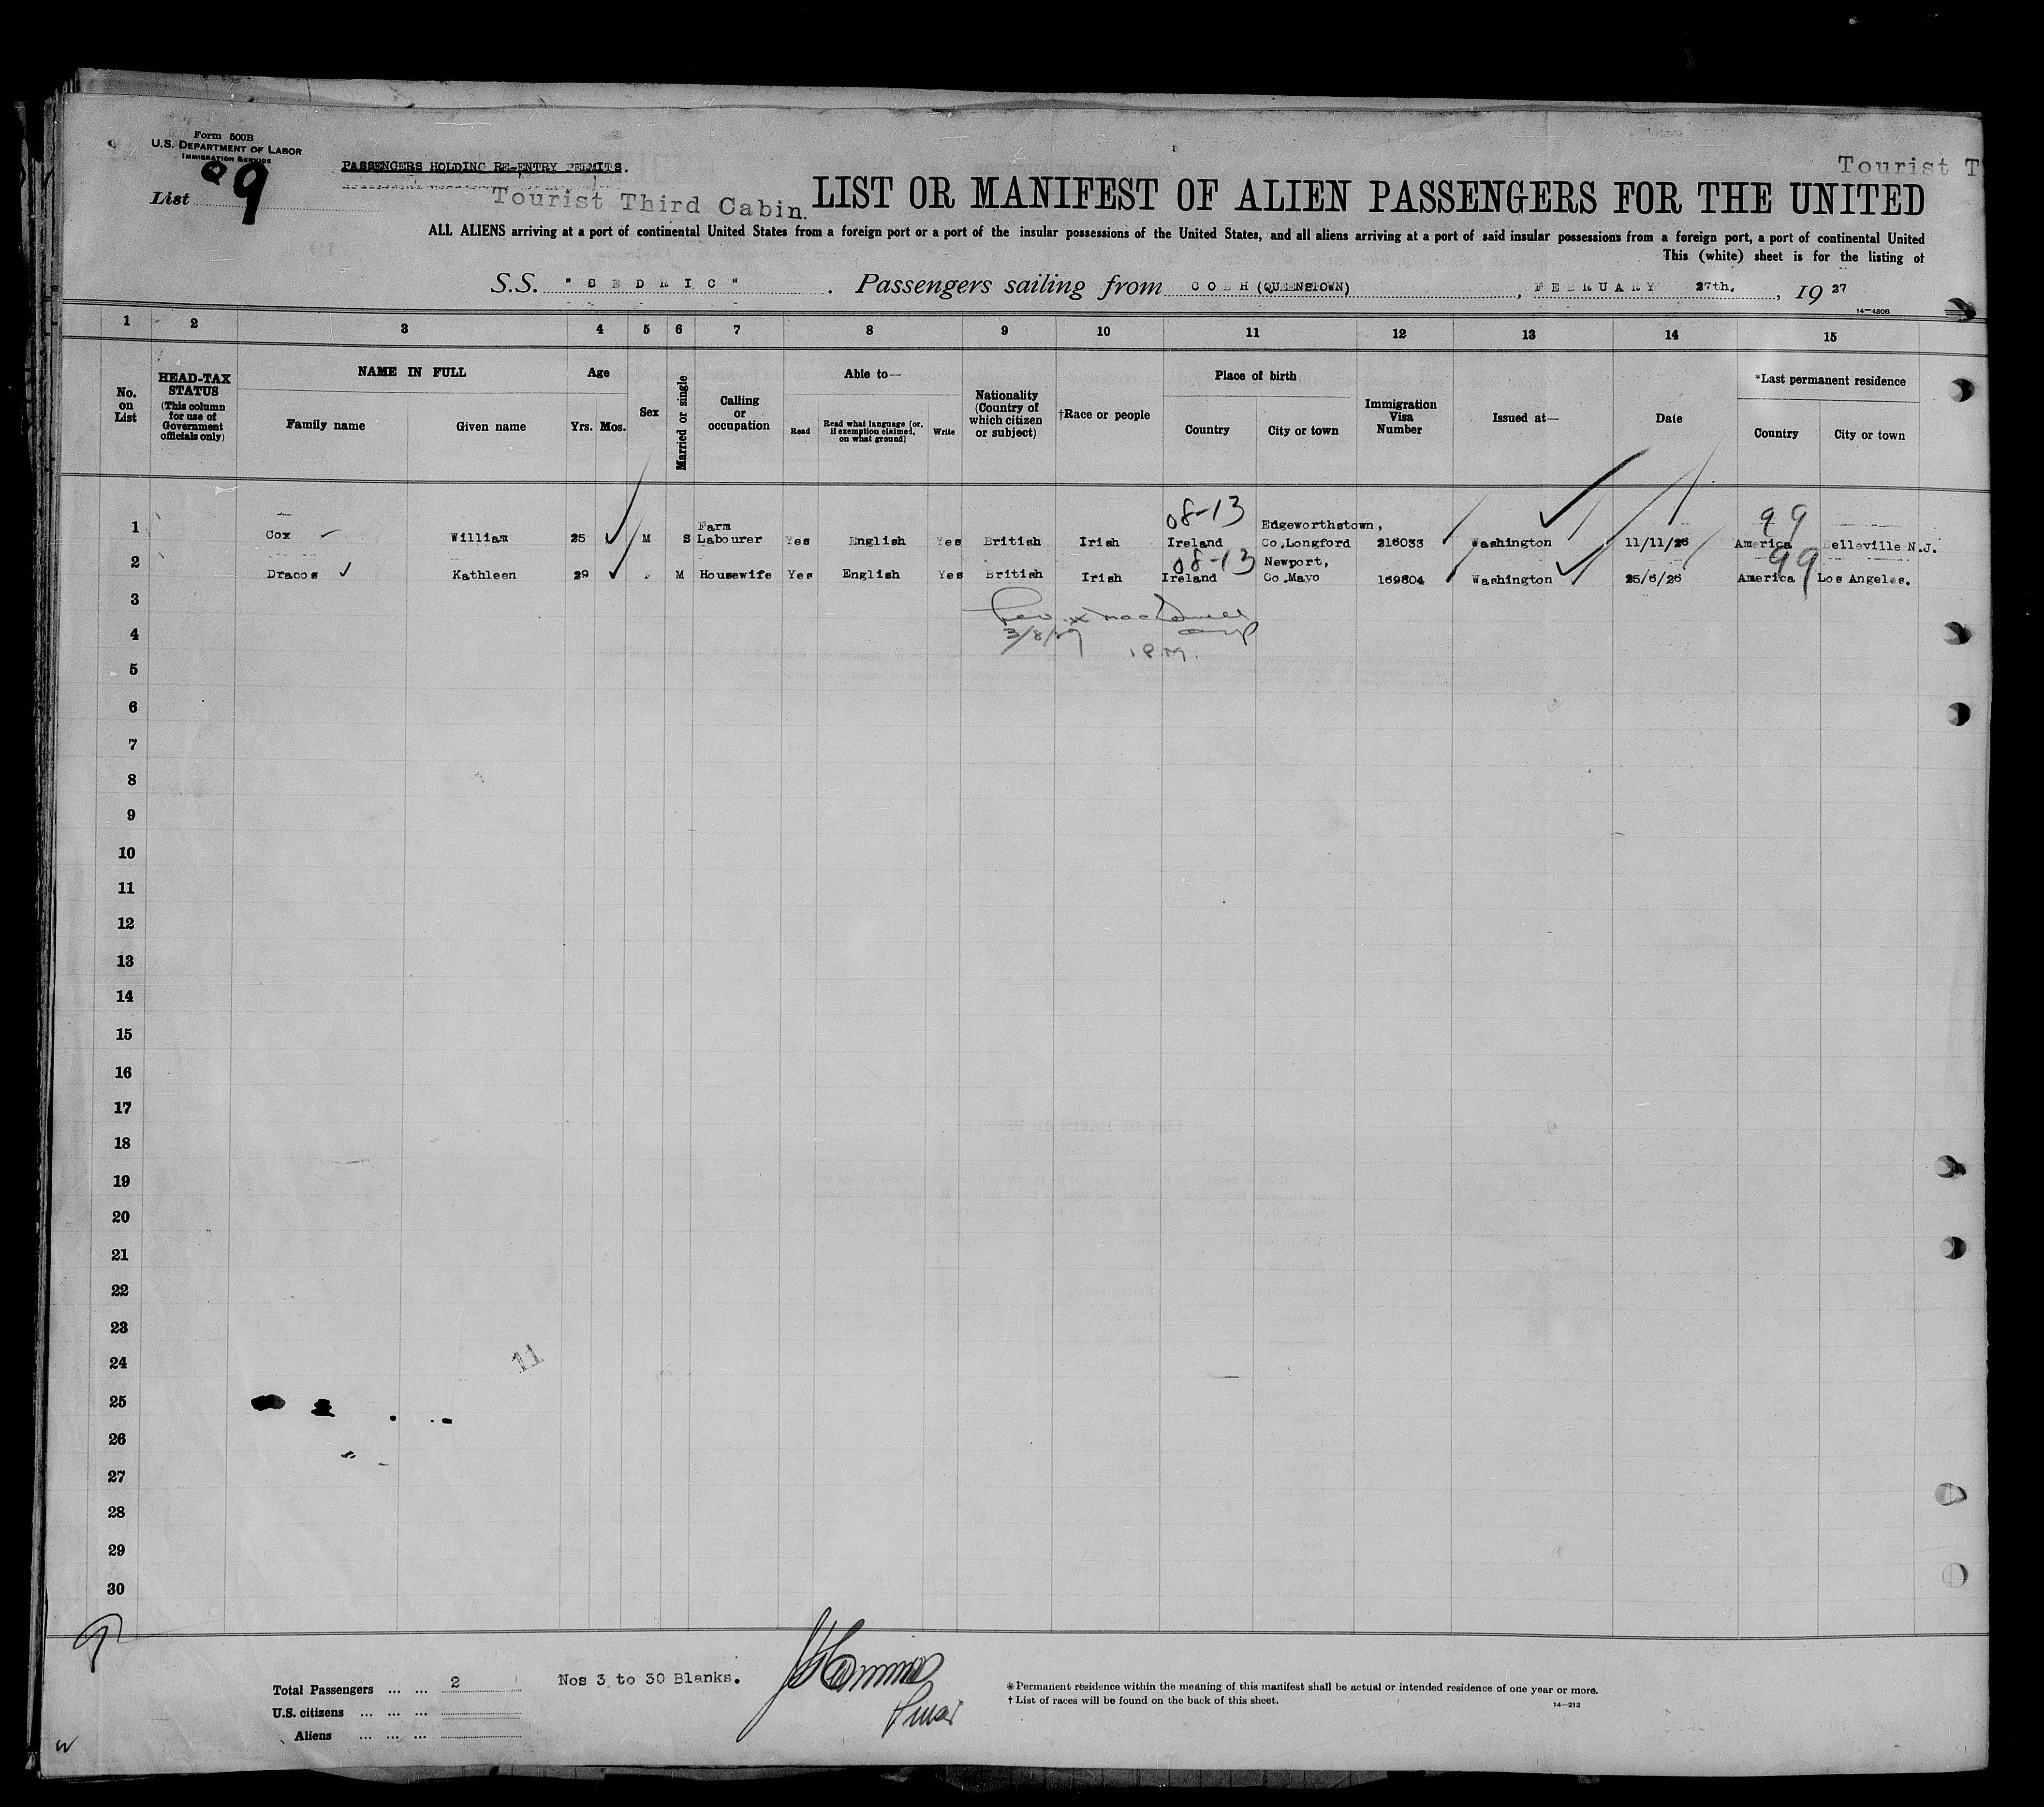 Form 500B
U.S. DEPARTMENT OF LABOR
IMMIGRATION SERVICE
List 9
PASSENGERS HOLDING RE-ENTRY PERMITS.
Tourist Third Cabin.
Tourist T
LIST OR MANIFEST OF ALIEN PASSENGERS FOR THE UNITED
ALL ALIENS arriving at a port of continental United States from a foreign port or a port of the insular possessions of the United States, and all aliens arriving at a port of said insular possessions from a foreign port, a port of continental United
This (white) sheet is for the listing of
S.S. "SEDRIC". Passengers sailing from COBH (QUEENSTOWN), FEBRUARY 27th., 1927
14—430B
1 2 3 4 5 6 7 8 9 10 11 12 13 14 15
No. on List
HEAD-TAX STATUS (This column for use of Government officials only)
NAME IN FULL
Family name Given name
Age
Yrs. Mos.
Sex
Married or single
Calling or occupation
Able to—
Read
Read what language [or, if exemption claimed, on what ground]
Write
Nationality (Country of which citizen or subject)
†Race or people
Place of birth
Country City or town
Immigration Visa Number
Issued at—
Date
*Last permanent residence
Country City or town
08-13 99
1 Cox William 25 M S Farm Labourer Yes English Yes British Irish Ireland Edgeworthstown, Co.Longford 216033 Washington 11/11/26 America Belleville N.J.
08-13 99
2 Dracos Kathleen 29 F M Housewife Yes English Yes British Irish Ireland Newport, Co.Mayo 169804 Washington 25/6/26 America Los Angeles.
3
3/8/27
4
5
6
7
8
9
10
11
12
13
14
15
16
17
18
19
20
21
22
23
24
11
25
26
27
28
29
30
Total Passengers ... ... 2
U.S. citizens ... ... ...
Aliens ... ... ...
Nos 3 to 30 Blanks.
*Permanent residence within the meaning of this manifest shall be actual or intended residence of one year or more.
†List of races will be found on the back of this sheet.
14—213